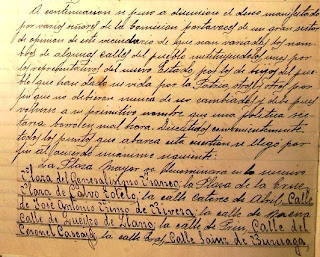 A continuacion se puso a discusion el deseo manifestado
por varios señores de la Comision portavoces de un gran sector
de opinion de este vecindario de que sean variados los nom-
bres de algunas calles del pueblo sustituyendolos unos por
los representativos del nuevo Estado, por los de hijos del pue-
blo que han dado su vida por la Patria otros y otros por
fin que no debieron nunca de ser cambiados y debe pues
volverse a su primitivo nombre que una politica sec-
taria borró en mal hora. Discutidos convenientemente
todos los puntos que abarca esta cuestion se llegó por
fin al acuerdo unanime siguiente:
La Plaza Mayor se denominara en lo sucesivo
Plaza del Generalisimo Franco, la Plaza de la
Plaza de Calvo Sotelo, la calle Catorce de Abril, Calle
de José Antonio Primo de Rivera, la calle de Baena
Calle de Queipo de Llano, la calle de Prim, Calle del
Coronel Cascajo, la calle Calle Saenz de Buruaga,